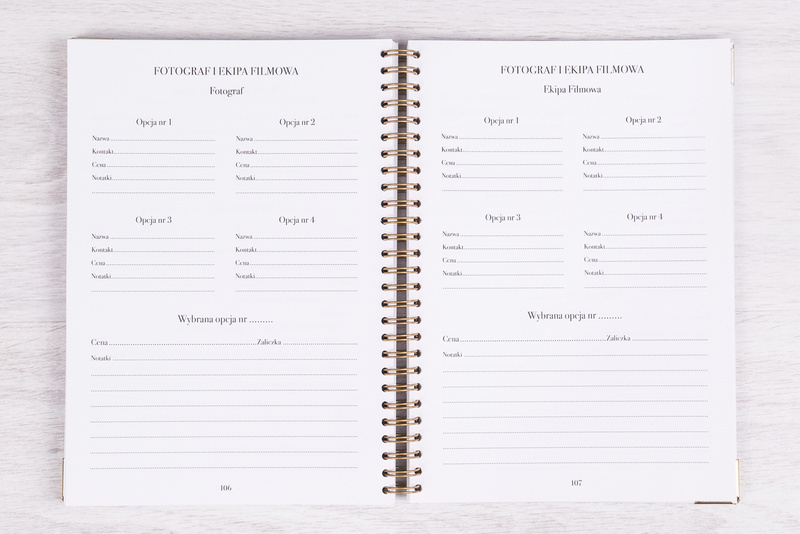 FOTOGRAF I EKIPA FILMOWA
Fotograf
Opcja nr 1
Nazwa
Kontakt
Cena
Notatki
Opcja nr 2
Nazwa
Kontakt
Cena
Notatki
Opcja nr 3
Nazwa
Kontakt
Cena
Notatki
Opcja nr 4
Nazwa
Kontakt
Cena
Notatki
Wybrana opcja nr .........
Cena Zaliczka
Notatki
106
FOTOGRAF I EKIPA FILMOWA
Ekipa Filmowa
Opcja nr 1
Nazwa
Kontakt
Cena
Notatki
Opcja nr 2
Nazwa
Kontakt
Cena
Notatki
Opcja nr 3
Nazwa
Kontakt
Cena
Notatki
Opcja nr 4
Nazwa
Kontakt
Cena
Notatki
Wybrana opcja nr .........
Cena Zaliczka
Notatki
107